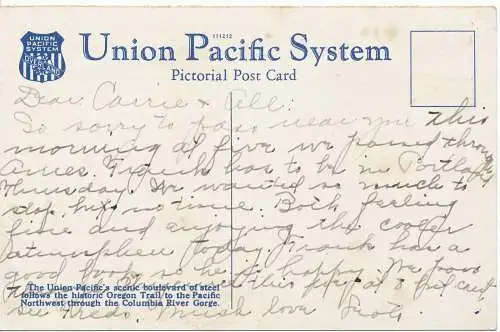 UNION
PACIFIC
SYSTEM
OVERLAND
111212
Union Pacific System
Pictorial Post Card
Dear Carrie & All:
So sorry to pass near you this
morning at five we passed through
Ames. Frank has to be in Portland
Thursday. We wanted so much to
stop, but no time. Both feeling
fine and enjoying the cooler
atmosphere today. Frank has a
good so he is happy. We pass
The Union Pacific's scenic boulevard of steel
follows the historic Oregon Trail to the Pacific
Northwest through the Columbia River Gorge.
this at 8
see Much love